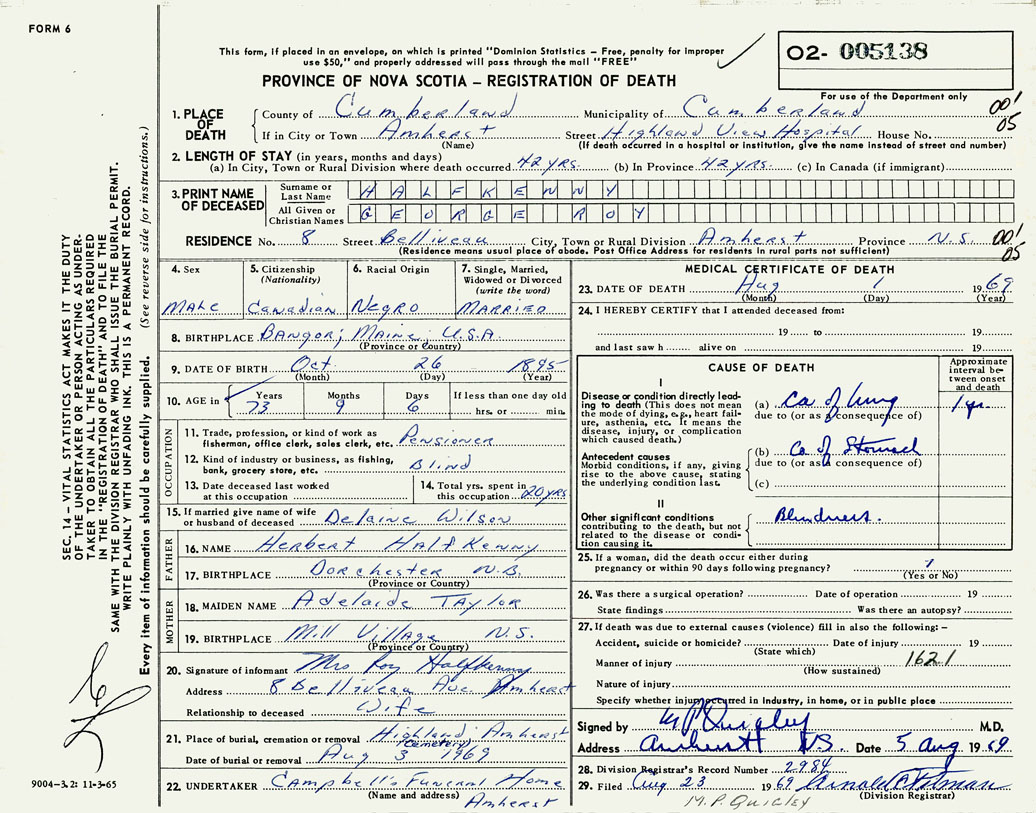 FORM 6
This form, if placed in an envelope, on which is printed "Dominion Statistics — Free, penalty for improper
use $50," and properly addressed will pass through the mail "FREE"
O2- 005138
PROVINCE OF NOVA SCOTIA — REGISTRATION OF DEATH
For use of the Department only
1. PLACE OF DEATH
County of Cumberland Municipality of Cumberland 001
If in City or Town Amherst Street Highland View Hospital House No. 05
(Name) (If death occurred in a hospital or institution, give the name instead of street and number)
2. LENGTH OF STAY (in years, months and days)
(a) In City, Town or Rural Division where death occurred 42 YRS. (b) In Province 42 YRS. (c) In Canada (if immigrant)
3. PRINT NAME OF DECEASED
Surname or Last Name HALFKENNY
All Given or Christian Names GEORGE ROY
RESIDENCE No. 8 Street Belliveau City, Town or Rural Division Amherst Province N.S. 001
(Residence means usual place of abode. Post Office Address for residents in rural parts not sufficient) 05
4. Sex
MALE
5. Citizenship
(Nationality)
Canadian
6. Racial Origin
Negro
7. Single, Married,
Widowed or Divorced
(write the word)
MARRIED
8. BIRTHPLACE Bangor, Maine, U.S.A.
(Province or Country)
9. DATE OF BIRTH Oct 26 1895
(Month) (Day) (Year)
10. AGE in Years Months Days If less than one day old
73 9 6 hrs. or min.
OCCUPATION
11. Trade, profession, or kind of work as
fisherman, office clerk, sales clerk, etc. Pensioner
12. Kind of industry or business, as fishing,
bank, grocery store, etc. Blind
13. Date deceased last worked
at this occupation
14. Total yrs. spent in
this occupation 20 yrs
15. If married give name of wife
or husband of deceased Delaine Wilson
FATHER
16. NAME Herbert Halfkenny
17. BIRTHPLACE Dorchester N.B.
(Province or Country)
MOTHER
18. MAIDEN NAME Adelaide TAYLOR
19. BIRTHPLACE Mill Village N.S.
(Province or Country)
20. Signature of informant Mrs Roy Halfkenny
Address 8 belliveau Ave. Amherst
Relationship to deceased Wife
21. Place of burial, cremation or removal Highland, Amherst
(Cemetery)
Date of burial or removal Aug 3 1969
22. UNDERTAKER Campbell's Funeral Home
(Name and address) Amherst
MEDICAL CERTIFICATE OF DEATH
23. DATE OF DEATH Aug 1 1969
(Month) (Day) (Year)
24. I HEREBY CERTIFY that I attended deceased from:
19 to 19
and last saw h alive on 19
CAUSE OF DEATH
Approximate
interval be-
tween onset
and death
I
Disease or condition directly lead-
ing to death (This does not mean
the mode of dying, e.g., heart fail-
ure, asthenia, etc. It means the
disease, injury, or complication
which caused death.)
(a) Ca of lung 1 yr.
due to (or as a consequence of)
Antecedent causes
Morbid conditions, if any, giving
rise to the above cause, stating
the underlying condition last.
(b) Ca of Stomach
due to (or as a consequence of)
(c)
II
Other significant conditions
contributing to the death, but not
related to the disease or condi-
tion causing it.
Blindness.
25. If a woman, did the death occur either during
pregnancy or within 90 days following pregnancy?
(Yes or No)
26. Was there a surgical operation? Date of operation 19
State findings Was there an autopsy?
27. If death was due to external causes (violence) fill in also the following: —
Accident, suicide or homicide? Date of injury 19
(State which)
Manner of injury 1621
(How sustained)
Nature of injury
Specify whether injury occurred in industry, in home, or in public place
Signed by M P Quigley M.D.
Address Amherst N.S. Date 5 Aug 1969
28. Division Registrar's Record Number 2984
29. Filed Aug 23 1969
(Division Registrar)
M.P. QUIGLEY
SEC. 14 — VITAL STATISTICS ACT MAKES IT THE DUTY
OF THE UNDERTAKER OR PERSON ACTING AS UNDER-
TAKER TO OBTAIN ALL THE PARTICULARS REQUIRED
IN THE "REGISTRATION OF DEATH" AND TO FILE THE
SAME WITH THE DIVISION REGISTRAR WHO SHALL ISSUE THE BURIAL PERMIT.
WRITE PLAINLY WITH UNFADING INK. THIS IS A PERMANENT RECORD.
Every item of information should be carefully supplied. (See reverse side for instructions.)
9004-3.2: 11-3-65